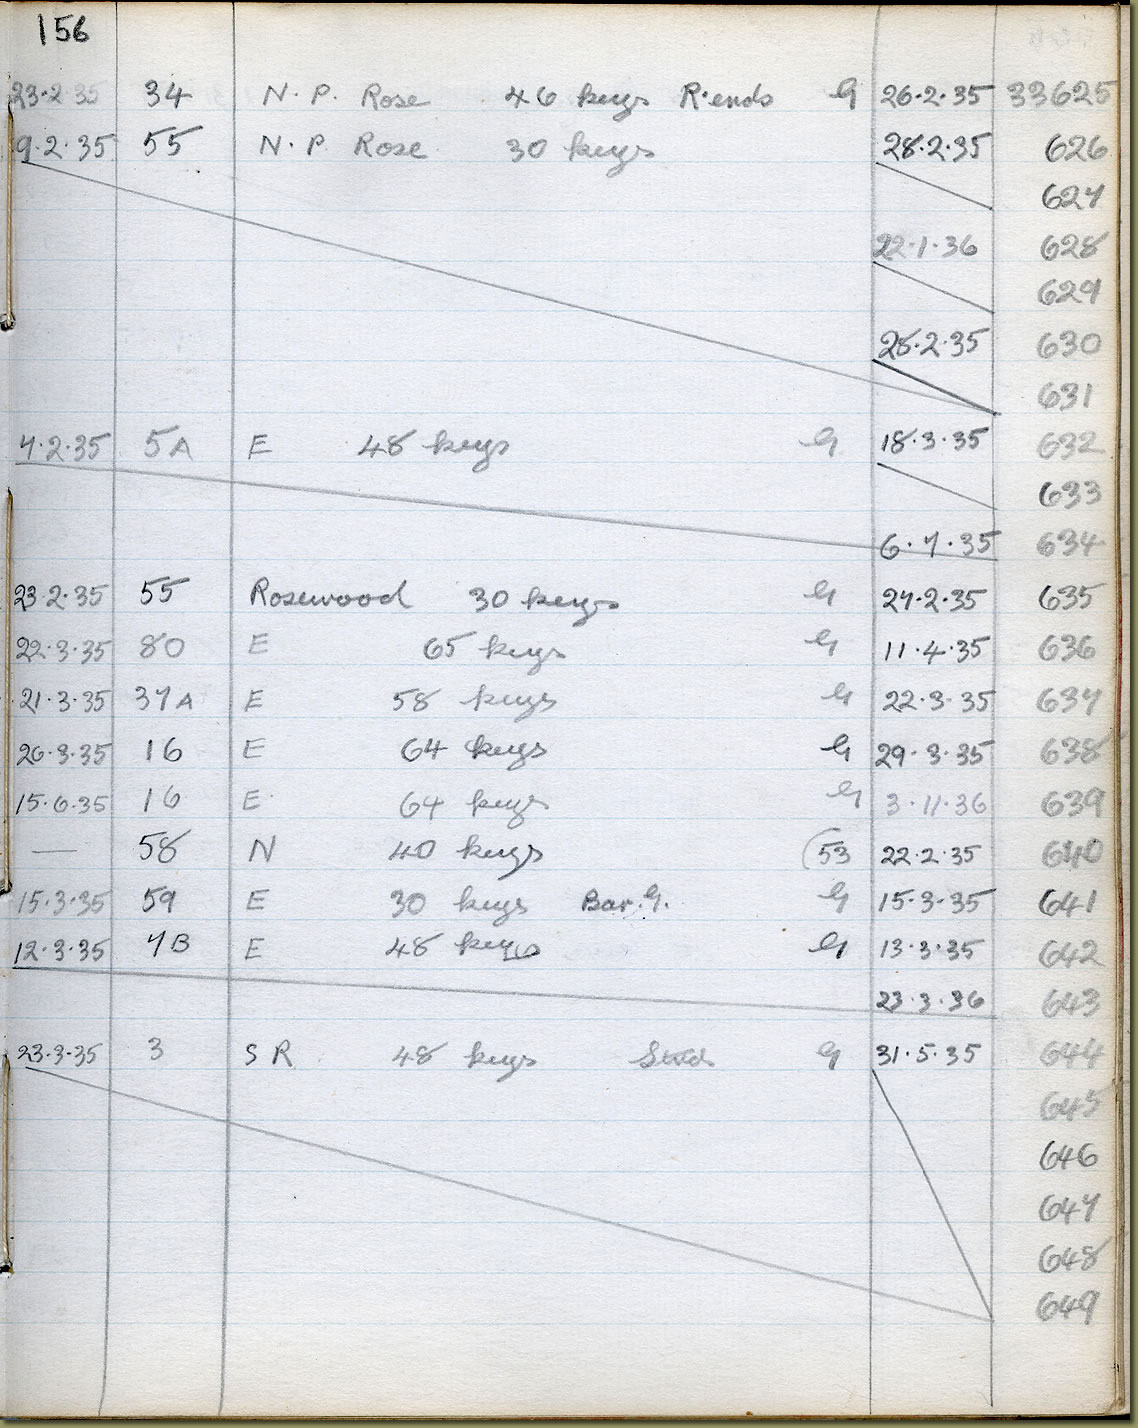 156
23·2·35 34 N.P. Rose 46 keys R·ends G 26·2·35 33625
9·2·35 55 N.P. Rose 30 keys 28·2·35 626
627
22·1·36 628
629
28·2·35 630
631
7·2·35 5A E 48 keys G 18·3·35 632
633
6·7·35 634
23·2·35 55 Rosewood 30 keys G 27·2·35 635
22·3·35 80 E 65 keys G 11·4·35 636
21·3·35 37A E 58 keys G 22·3·35 637
26·3·35 16 E 64 keys G 29·3·35 638
15·6·35 16 E 64 keys G 3·11·36 639
— 58 N 40 keys (53 22·2·35 640
15·3·35 59 E 30 keys Bar.G. G 15·3·35 641
12·3·35 7B E 48 keys G 13·3·35 642
23·3·36 643
23·3·35 3 SR 48 keys G 31·5·35 644
645
646
647
648
649